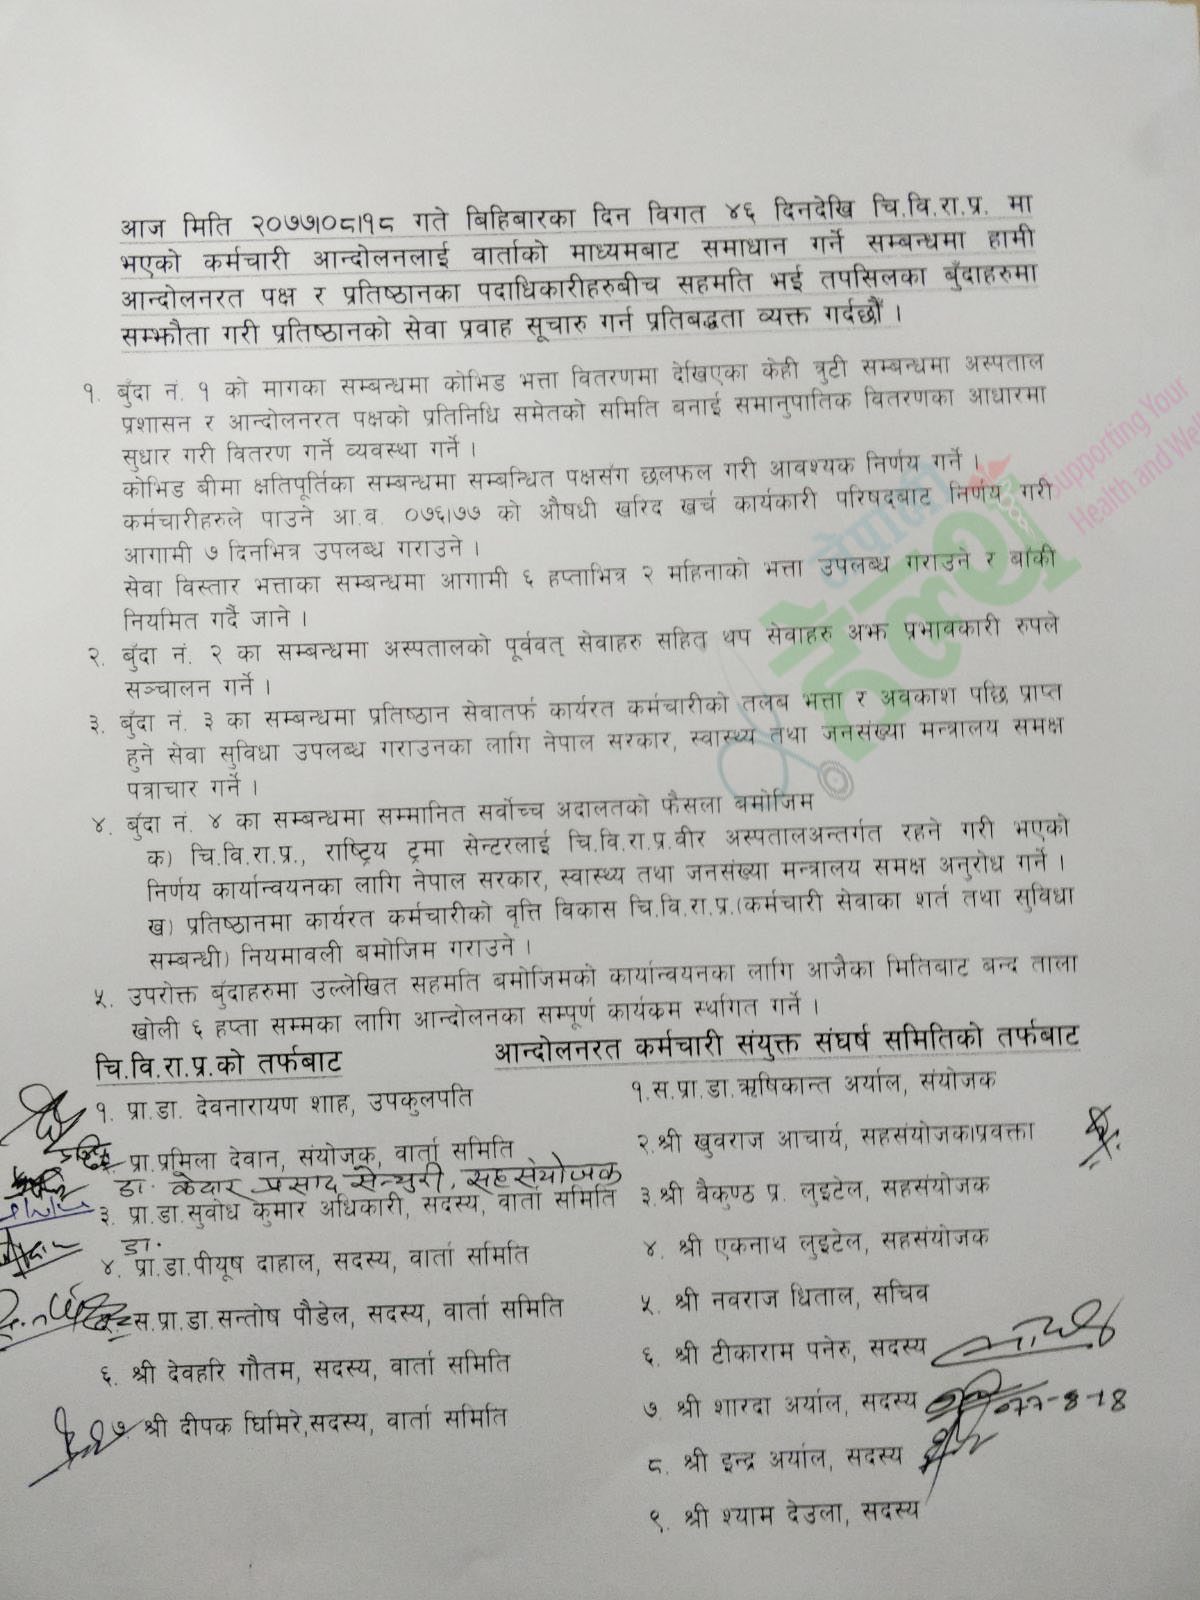 आज मिति २०७७।०८।१८ गते बिहिबारका दिन विगत ४६ दिनदेखि चि.वि.रा.प्र. मा
भएको कर्मचारी आन्दोलनलाई वार्ताको माध्यमबाट समाधान गर्ने सम्बन्धमा हामी
आन्दोलनरत पक्ष र प्रतिष्ठानका पदाधिकारीहरुबीच सहमति भई तपसिलका बुँदाहरुमा
सम्झौता गरी प्रतिष्ठानको सेवा प्रवाह सूचारु गर्न प्रतिबद्धता व्यक्त गर्दछौं ।
१. बुँदा नं. १ को मागका सम्बन्धमा कोभिड भत्ता वितरणमा देखिएका केही त्रुटी सम्बन्धमा अस्पताल
प्रशासन र आन्दोलनरत पक्षको प्रतिनिधि समेतको समिति बनाई समानुपातिक वितरणका आधारमा
सुधार गरी वितरण गर्ने व्यवस्था गर्ने ।
कोभिड बीमा क्षतिपूर्तिका सम्बन्धमा सम्बन्धित पक्षसंग छलफल गरी आवश्यक निर्णय गर्ने ।
कर्मचारीहरुले पाउने आ.व. ०७६।७७ को औषधी खरिद खर्च कार्यकारी परिषदबाट निर्णय गरी
आगामी ७ दिनभित्र उपलब्ध गराउने ।
सेवा विस्तार भत्ताका सम्बन्धमा आगामी ६ हप्ताभित्र २ महिनाको भत्ता उपलब्ध गराउने र बाँकी
नियमित गर्दै जाने ।
२. बुँदा नं. २ का सम्बन्धमा अस्पतालको पूर्ववत् सेवाहरु सहित् थप सेवाहरु अझ प्रभावकारी रुपले
सञ्चालन गर्ने ।
३. बुँदा नं. ३ का सम्बन्धमा प्रतिष्ठान सेवातर्फ कार्यरत कर्मचारीको तलब भत्ता र अवकाश पछि प्राप्त
हुने सेवा सुविधा उपलब्ध गराउनका लागि नेपाल सरकार, स्वास्थ्य तथा जनसंख्या मन्त्रालय समक्ष
पत्राचार गर्ने ।
४. बुँदा नं. ४ का सम्बन्धमा सम्मानित सर्वोच्च अदालतको फैसला बमोजिम
क) चि.वि.रा.प्र., राष्ट्रिय ट्रमा सेन्टरलाई चि.वि.रा.प्र.वीर अस्पतालअन्तर्गत रहने गरी भएको
निर्णय कार्यान्वयनका लागि नेपाल सरकार, स्वास्थ्य तथा जनसंख्या मन्त्रालय समक्ष अनुरोध गर्ने ।
ख) प्रतिष्ठानमा कार्यरत कर्मचारीको वृत्ति विकास चि.वि.रा.प्र.(कर्मचारी सेवाका शर्त तथा सुविधा
सम्बन्धी) नियमावली बमोजिम गराउने ।
५. उपरोक्त बुँदाहरुमा उल्लेखित सहमति बमोजिमको कार्यान्वयनका लागि आजैका मितिबाट बन्द ताला
खोली ६ हप्ता सम्मका लागि आन्दोलनका सम्पूर्ण कार्यकम स्थगित गर्ने ।
चि.वि.रा.प्र.को तर्फबाट
१. प्रा.डा. देवनारायण शाह, उपकुलपति
प्रा.प्रमिला देवान, संयोजक, वार्ता समिति
डा. केदार प्रसाद सेन्चुरी, सहसंयोजक
३. प्रा.डा.सुवोध कुमार अधिकारी, सदस्य, वार्ता समिति
डा.
४. प्रा.डा.पीयूष दाहाल, सदस्य, वार्ता समिति
स.प्रा.डा.सन्तोष पौडेल, सदस्य, वार्ता समिति
६. श्री देवहरि गौतम, सदस्य, वार्ता समिति
७. श्री दीपक घिमिरे,सदस्य, वार्ता समिति
आन्दोलनरत कर्मचारी संयुक्त संघर्ष समितिको तर्फबाट
१.स.प्रा.डा.ऋषिकान्त अर्याल, संयोजक
२.श्री खुवराज आचार्य, सहसंयोजक।प्रवक्ता
३.श्री वैकुण्ठ प्र. लुइटेल, सहसंयोजक
४. श्री एकनाथ लुइटेल, सहसंयोजक
५. श्री नवराज धिताल, सचिव
६. श्री टीकाराम पनेरु, सदस्य
७. श्री शारदा अर्याल, सदस्य
077-8-18
८. श्री इन्द्र अर्याल, सदस्य
९. श्री श्याम देउला, सदस्य
नेपाली
हेल्थ
Supporting Your
Health and Wel